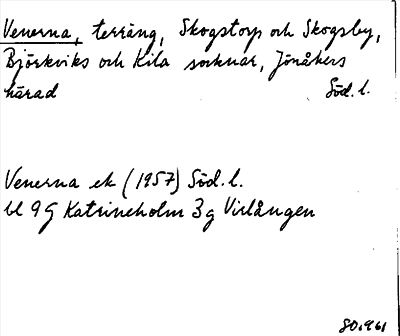 Venerna, terräng, Skogstorp och Skogsby,
Björkviks och Kila socknar, Jönåkers
härad Söd. l.
Venerna ek (1957) Söd. l.
bl 9G Katrineholm 3g Virlången